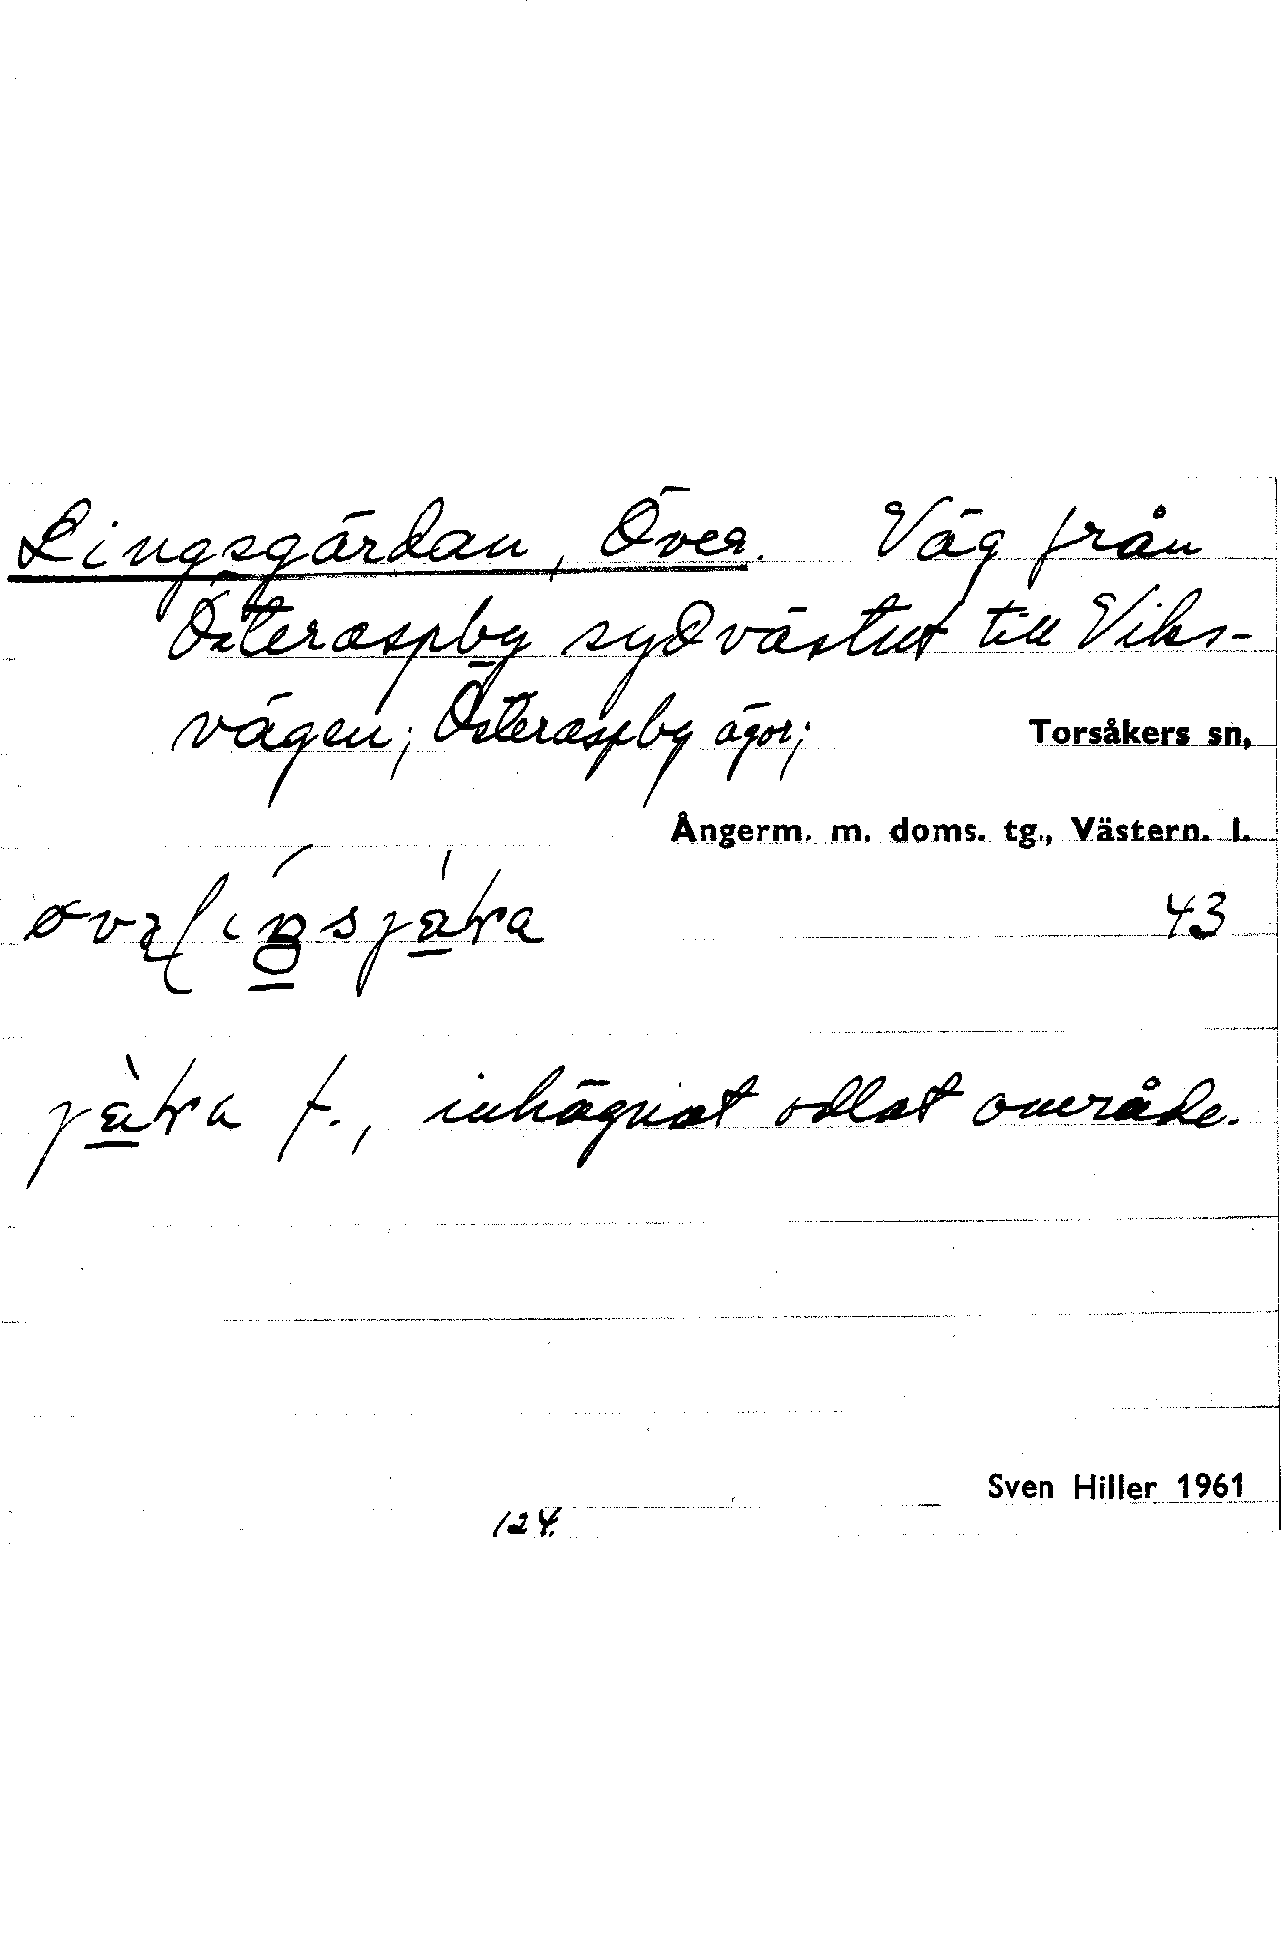 Lingsgärdan, Över. Väg från
Österaspby sydvästut till Viks-
vägen; Österaspby ägor; Torsåkers sn,
Ångerm. m. doms. tg., Västern. l.
43
f., inhägnat odlat område.
Sven Hiller 1961
124.